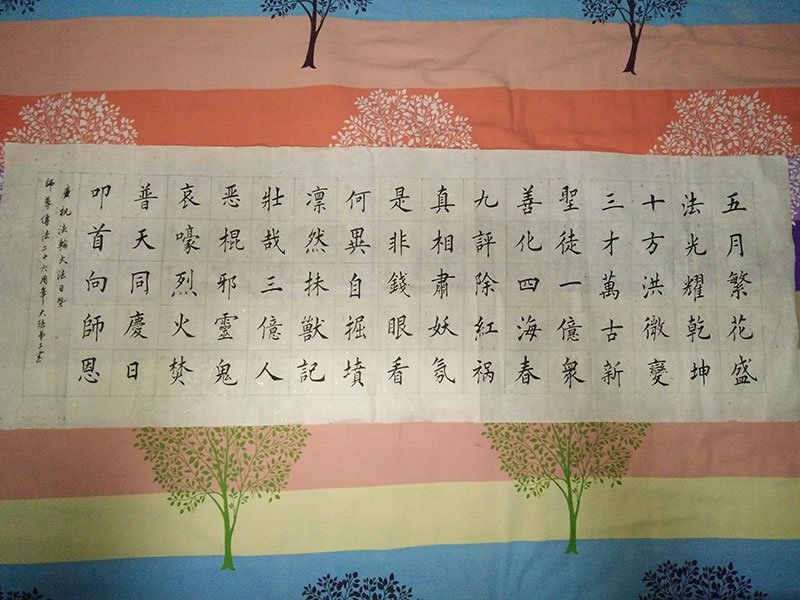 五月繁花盛
法光耀乾坤
十方洪微變
三才萬古新
聖徒一億眾
善化四海春
九評除紅祸
真相肅妖氛
是非錢眼看
何異自掘墳
凛然抹獸記
壯哉三億人
恶棍邪靈鬼
哀嚎烈火焚
普天同慶日
叩首向師恩
慶祝法輪大法日暨
師尊傳法二十六周年大陸弟子書